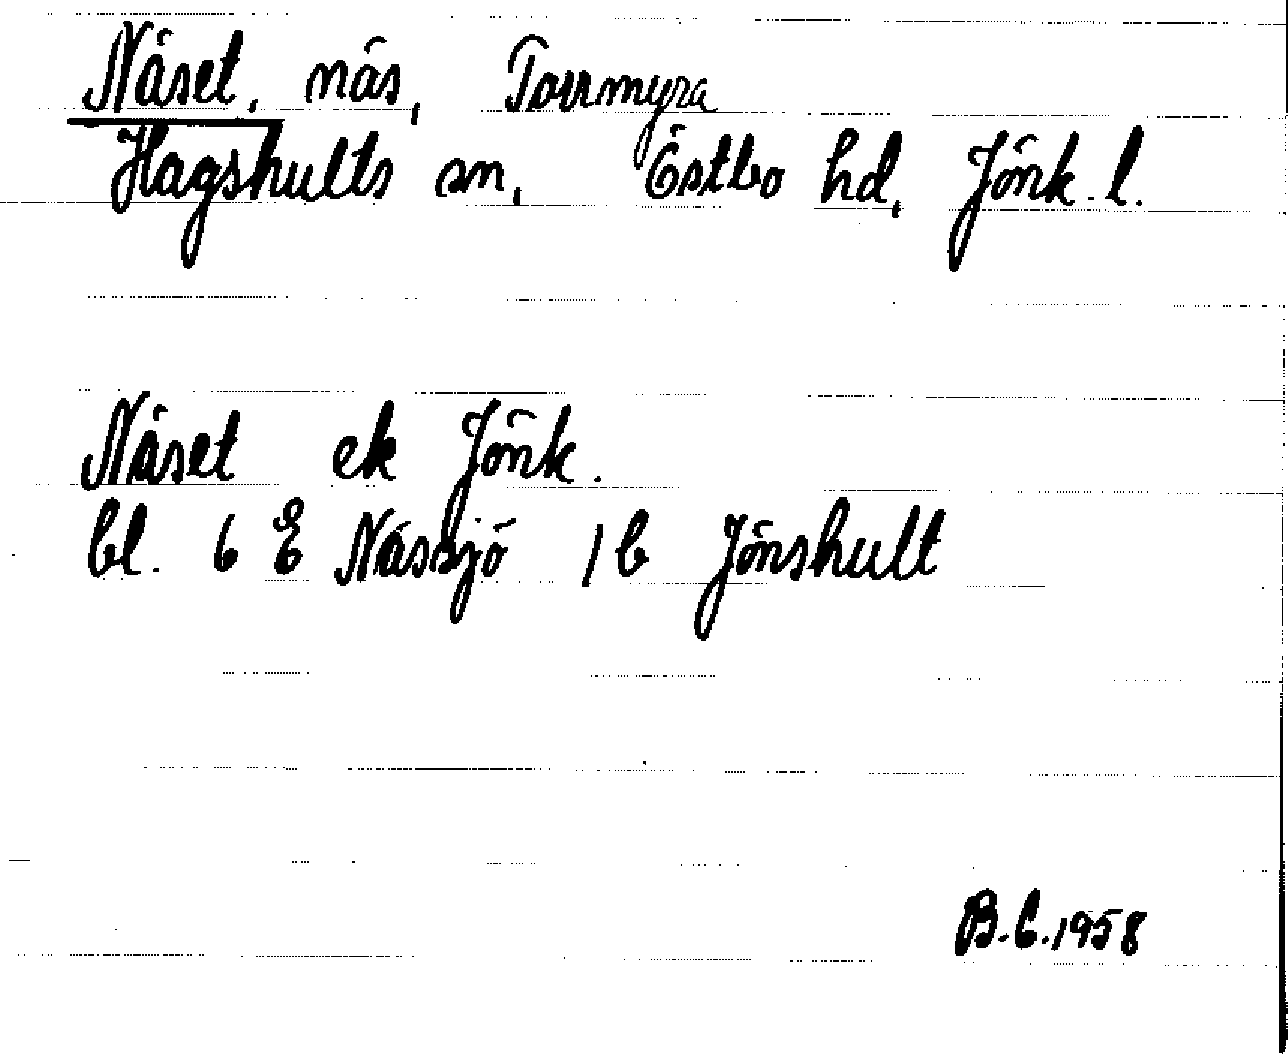 Näset, näs, Torrmyra
Hagshults sn, Östbo hd, Jönk. l.
Näset ek Jönk.
bl. 6 E Nässjö 1 b Jönshult
B.C. 1958